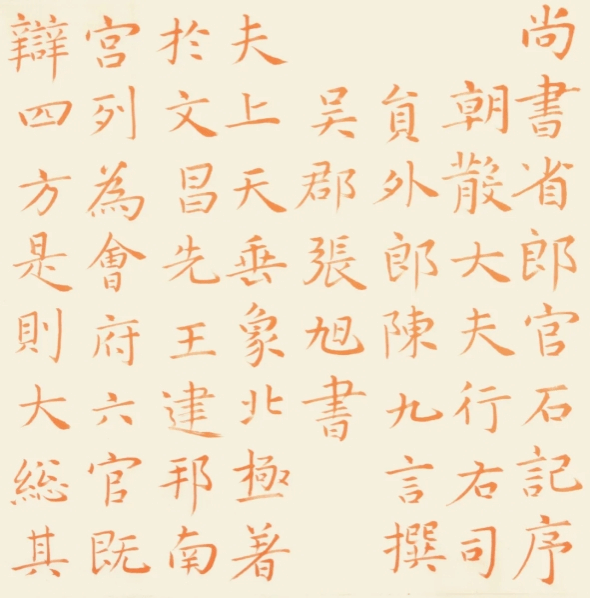 尚書省郎官石記序
朝散大夫行右司
貟外郎陳九言撰
吴郡張旭書
夫上天垂象北極著
於文昌先王建邦南
宫列為會府六官既
辯四方是則大総其